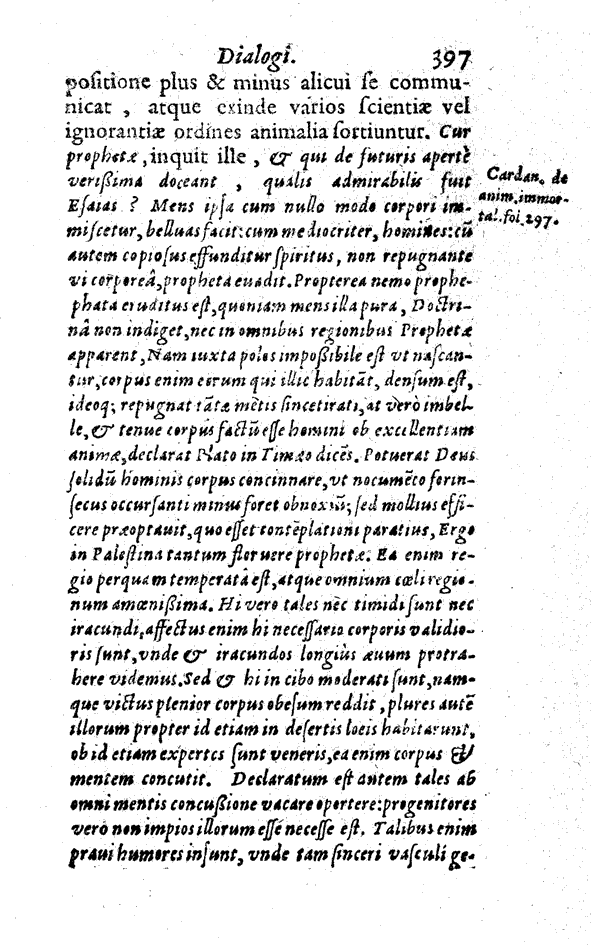 Dialogi. 397
positione plus & minus alicui se commu-
nicat, atque exinde varios scientiæ vel
ignorantiæ ordines animalia sortiuntur. Cur
prophetæ, inquit ille, & qui de futuris apertè
verißima doceant, qualis admirabilis fuit
Esaias? Mens ipsa cum nullo modo corpori im-
miscetur, belluas facit: cum mediocriter, homines: cũ
autem copiosus effunditur spiritus, non repugnante
vi corporeâ, propheta euadit. Propterea nemo prophe-
phata eruditus est, quoniam mens illa pura, Doctri-
nâ non indiget, nec in omnibus regionibus Prophetæ
apparent, Nam iuxta polos impoßibile est vt nascan-
tur, corpus enim eorum qui illic habitãt, densum est,
ideoq; repugnat tãtæ mẽtis sincetirati, at verò imbel-
le, & tenue corpus factũ esse homini ob excellentiam
animæ, declarat Plato in Timæo dicẽs. Potuerat Deus
solidũ hominis corpus concinnare, vt nocumẽto forin-
secus occursanti minus foret obnoxiũ; sed mollius effi-
cere præoptauit, quo esset contẽplationi paratius, Ergo
in Palestina tantum floruere prophetæ. Ea enim re-
gio perquam temperata est, atque omnium cœli regio-
num amœnißima. Hi vero tales nèc timidi sunt nec
iracundi, affectus enim hi necessario corporis validio-
ris sunt, vnde & iracundos longiùs æuum protra-
here videmus. Sed & hi in cibo moderati sunt, nam-
que victus plenior corpus obesum reddit, plures autẽ
illorum propter id etiam in desertis locis habitarunt,
ob id etiam expertes sunt veneris, ea enim corpus &
mentem concutit. Declaratum est antem tales ab
omni mentis concußione vacare oportere: progenitores
verò non impios illorum esse necesse est. Talibus enim
praui humores insunt, vnde tam sinceri vasculi ge-
Cardan. de
anim. immor-
tal. fol. 297.